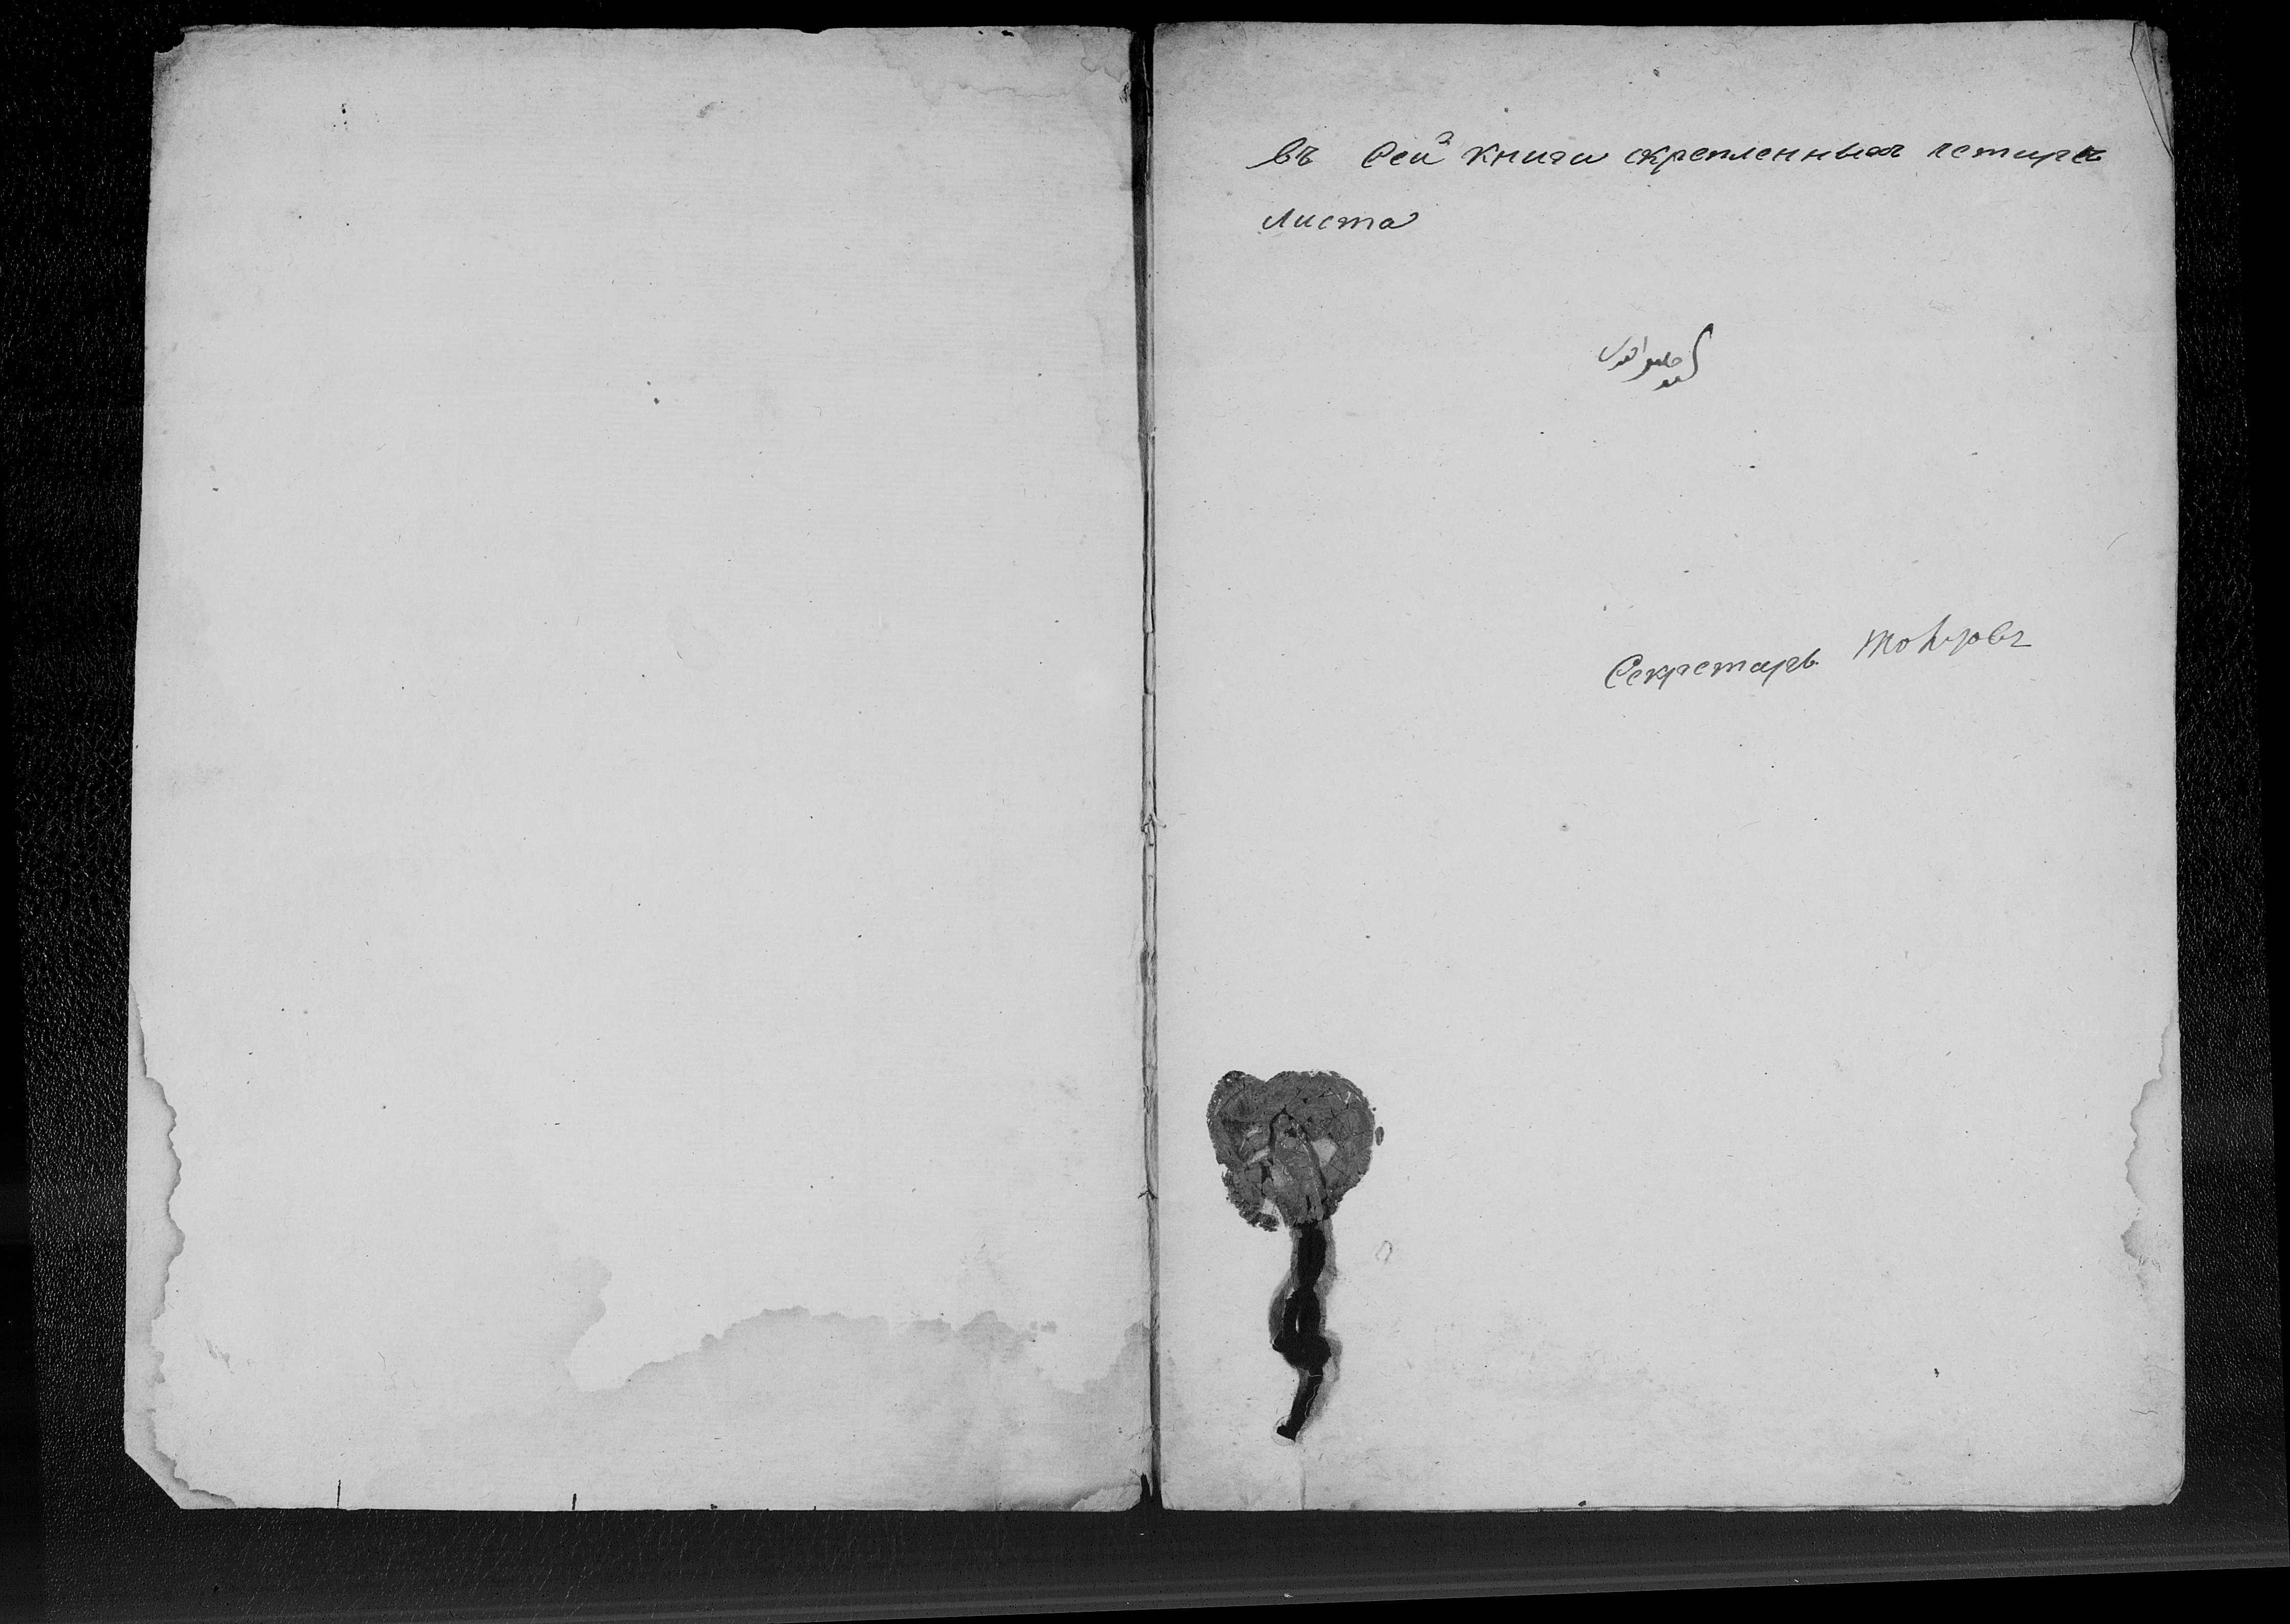 Въ сей книги скрепленныхъ четыре
листа
Секретарь